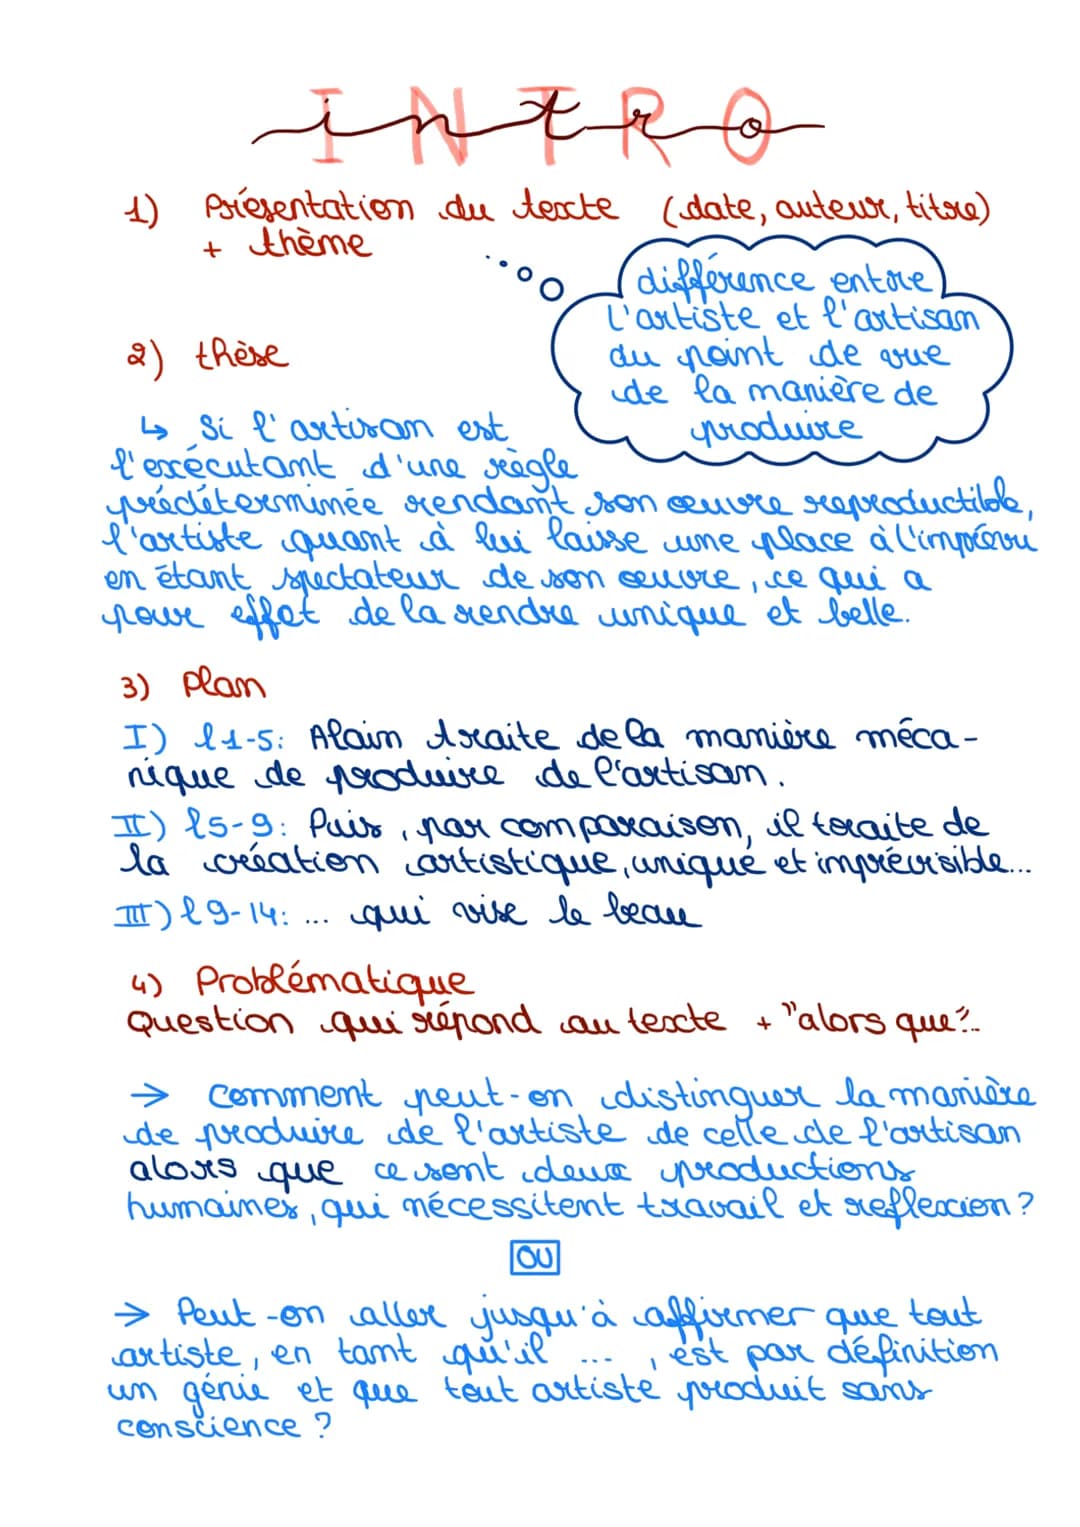 INTRO
intro
1) Présentation du texte (date, auteur, titre)
+ thème
différence entre
l'artiste et l'artisan
du point de vue
de la manière de
produire
2) thèse
↳ Si l'artisan est
l'exécutant d'une règle
prédéterminée rendant son œuvre reproductible,
l'artiste quant à lui laisse une place à l'imprévu
en étant spectateur de son œuvre, ce qui a
pour effet de la rendre unique et belle.
3) Plan
I) l1-5: Alain traite de la manière méca-
nique de produire de l'artisan.
II) l5-9: Puis, par comparaison, il traite de
la création artistique, unique et imprévisible...
III) l9-14: ... qui vise le beau
4) Problématique
Question qui répond au texte + "alors que"...
→ Comment peut-on distinguer la manière
de produire de l'artiste de celle de l'artisan
alors que ce sont deux productions
humaines, qui nécessitent travail et reflexion ?
OU
→ Peut-on aller jusqu'à affirmer que tout
artiste, en tant qu'il ... , est par définition
un génie et que tout artiste produit sans
conscience ?